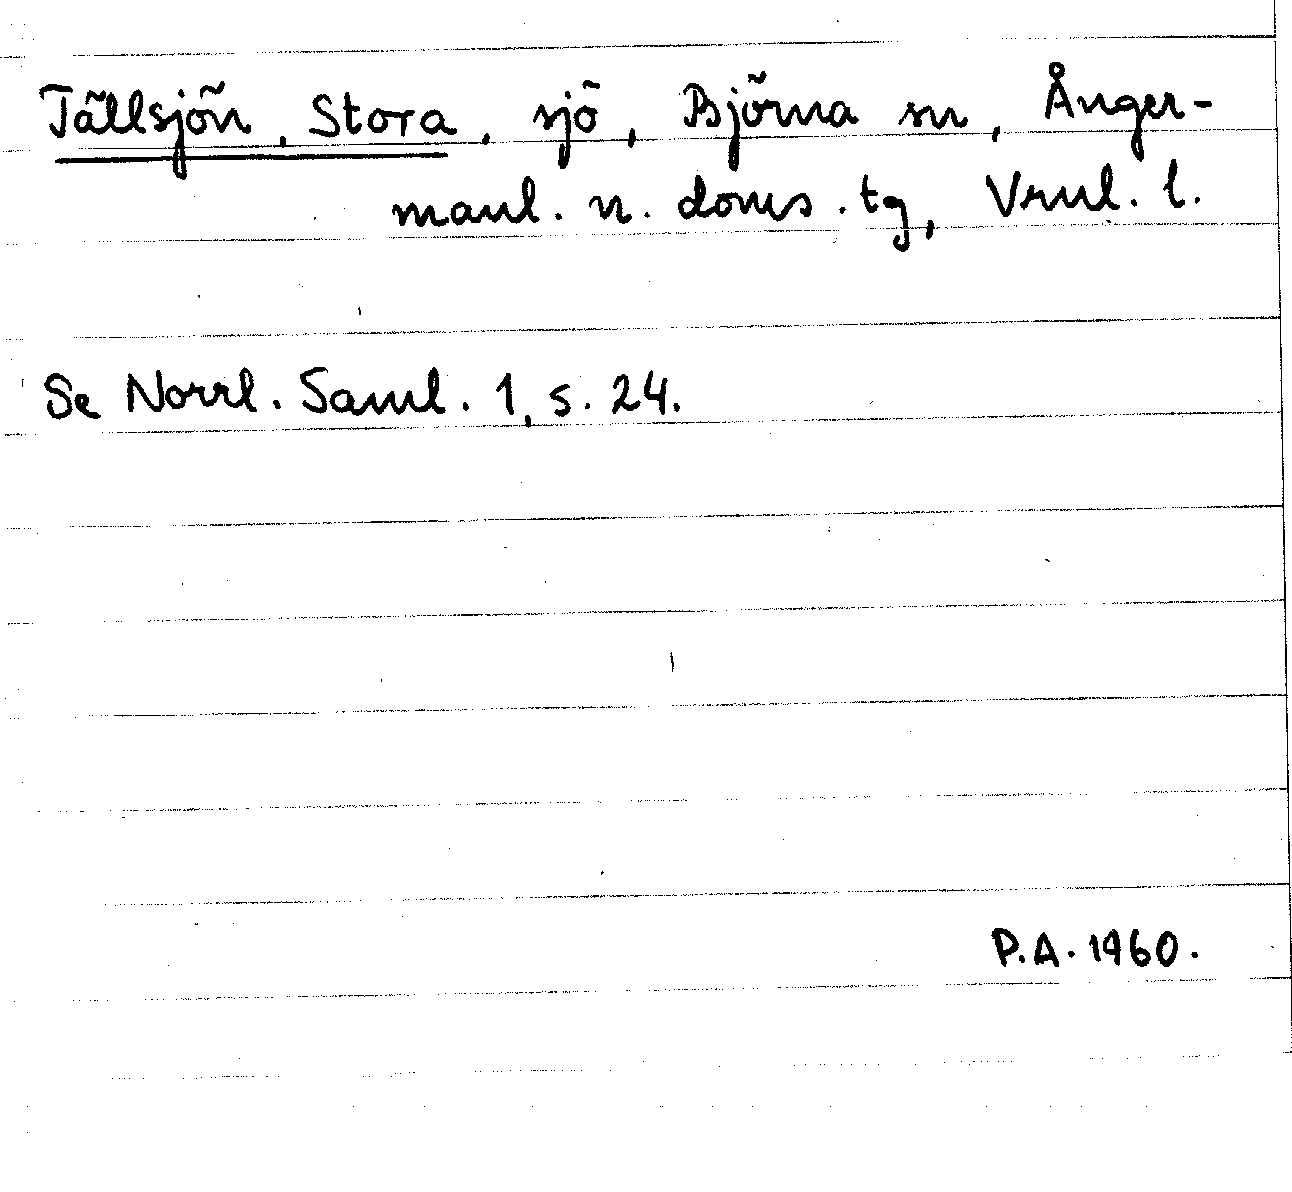 Tällsjön, Stora, sjö, Björna sn, Ånger-
manl. n. doms. tg, Vrnl. l.
Se Norrl. Saml. 1, s. 24.
P.A. 1960.